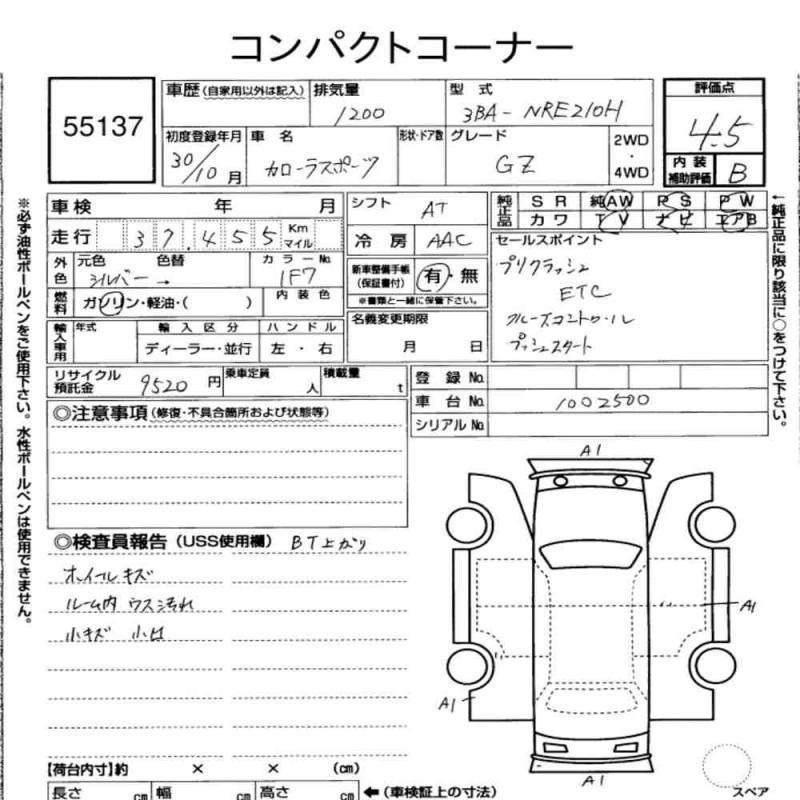 コンパクトコーナー
55137
車歴(自家用以外は記入)
排気量
1200
型式
3BA-NRE210H
評価点
4.5
初度登録年月
30/10月
車名
カローラスポーツ
形状・ドア数
グレード
GZ
2WD
・
4WD
内装
補助評価
B
車検 年 月
シフト
AT
純正品
SR 純AW PS PW
カワ TV ナビ エアB
走行 37,455 Km マイル
冷房
AAC
セールスポイント
プリクラッシュ
ETC
クルーズコントロール
プッシュスタート
外色
元色
シルバー→
色替
カラーNo.
1F7
新車整備手帳
(保証書付)
有・無
※書類と一緒に保管下さい。
燃料
ガソリン・軽油・( )
内装色
名義変更期限
月 日
輸入車用
年式
輸入区分
ディーラー・並行
ハンドル
左・右
リサイクル
預託金
9520円
乗車定員
人
積載量
t
登録No.
車台No.
1002500
シリアルNo.
◎注意事項(修復・不具合箇所および状態等)
◎検査員報告(USS使用欄) BT上がり
ホイールキズ
ルーム内 ウス汚れ
小キズ 小凹
A1
A1
A1
A1
【荷台内寸】約 × × (cm)
長さ cm 幅 cm 高さ cm
←(車検証上の寸法)
スペア
※必ず油性ボールペンをご使用下さい。水性ボールペンは使用できません。
←純正品に限り該当に○をつけて下さい。